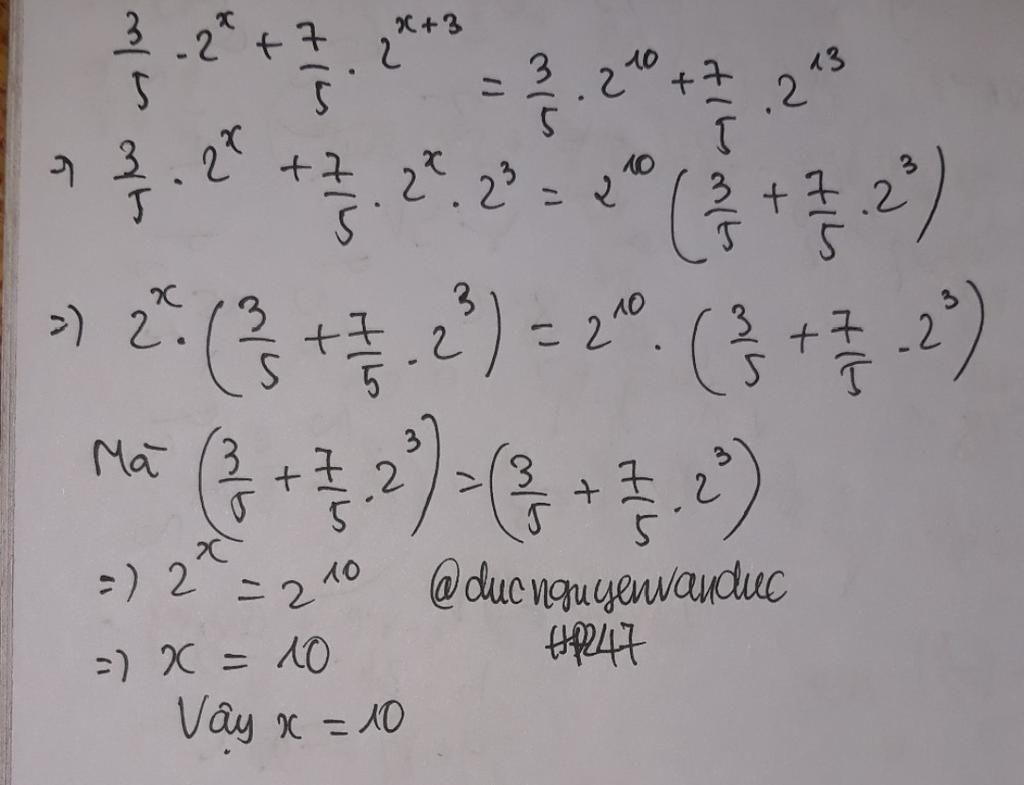 3/5 . 2^x + 7/5 . 2^(x+3) = 3/5 . 2^10 + 7/5 . 2^13
=> 3/5 . 2^x + 7/5 . 2^x . 2^3 = 2^10 (3/5 + 7/5 . 2^3)
=> 2^x . (3/5 + 7/5 . 2^3) = 2^10 . (3/5 + 7/5 . 2^3)
Mà (3/5 + 7/5 . 2^3) = (3/5 + 7/5 . 2^3)
=> 2^x = 2^10 @ducnguyenvanduc
=> x = 10
Vậy x = 10